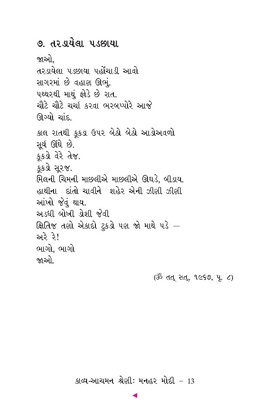 ૭. તરડાયેલા પડછાયા
જાઓ,
તરડાયેલા પડછાયા પહોંચાડી આવો
સાગરમાં છે વહાણ ઊભું.
પથ્થરથી માથું ફોડે છે રાત.
ચૌટે ચૌટે ચર્ચા કરવા ભરબપ્પોરે આજે
ઊગ્યો ચાંદ.
કાલ રાતથી કૂકડા ઉપર બેઠો બેઠો આડોઅવળો
સૂર્ય ઊંઘે છે.
કૂકડો વેરે તેજ.
કૂકડો સૂરજ.
મિલની ચિમની માછલીએ માછલીએ ઊઘડે, બીડાય.
હાથીના દાંતો ચાવીને શહેર એની ઝીણી ઝીણી
આંખો જેવું થાય.
અડધી બોખી ડોશી જેવી
ક્ષિતિજ તણો એકાદો ટુકડો પણ જો માથે પડે –
અરે રે!
ભાગો, ભાગો
જાઓ.
(ૐ તત્ સત્, ૧૯૬૭, પૃ. ૮)
કાવ્ય-આચમન શ્રેણી: મનહર મોદી – 13